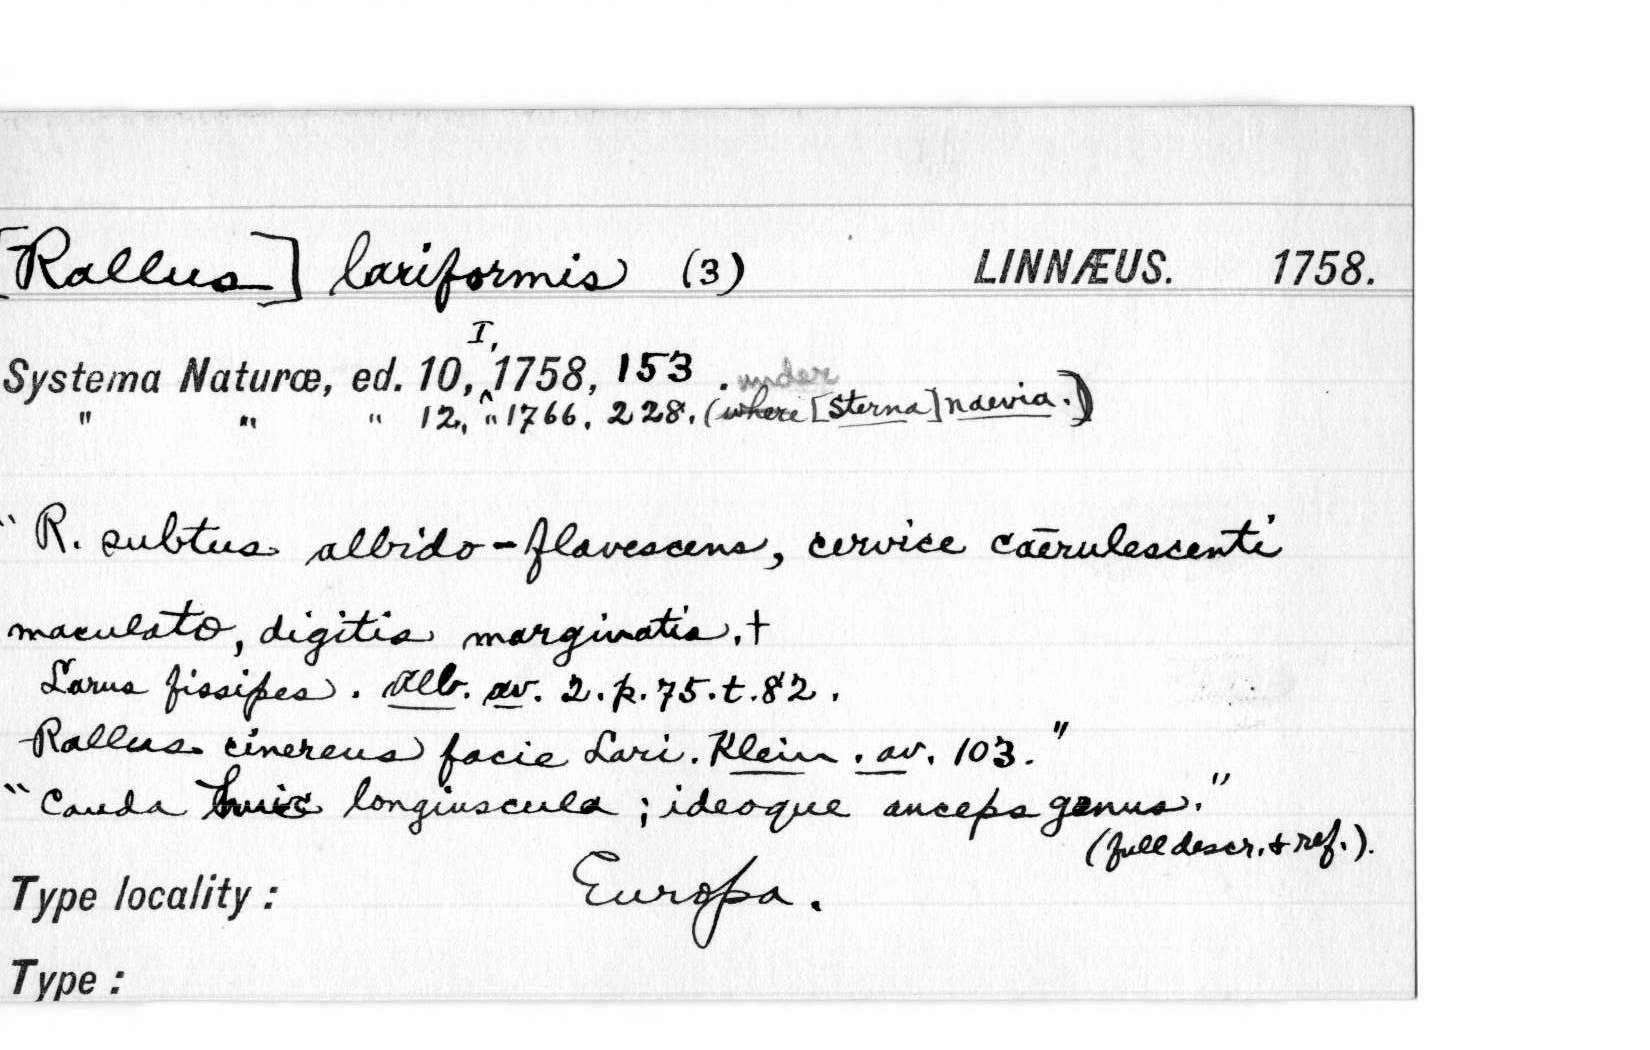 [Rallus] lariformis (3) LINNÆUS. 1758.
I,
Systema Naturæ, ed. 10, ^ 1758, 153 . under
" " " 12, " 1766, 228. (where [Sterna] naevia.)
"R. subtus albido-flavescens, cervice cærulescenti
maculato, digitis marginatis.†
Larus fissipes. Alb. av. 2. p. 75. t. 82.
Rallus cinereus facie Lari. Klein. av. 103."
"Cauda huic longiuscula; ideoque anceps genus."
(full descr. & ref.).
Type locality: Europa.
Type: